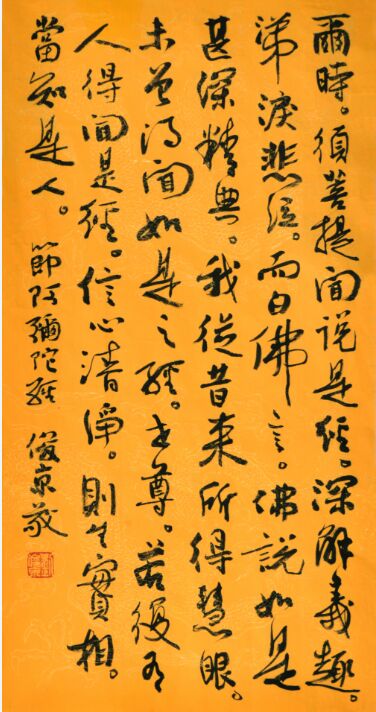 爾時。須菩提聞說是經。深解義趣。
涕淚悲泣。而白佛言。佛說如是
甚深精典。我從昔來所得慧眼。
未曾得聞如是之經。世尊。若復有
人得聞是經。信心清淨。則生實相。
當知是人。節阿彌陀經 俊京敬